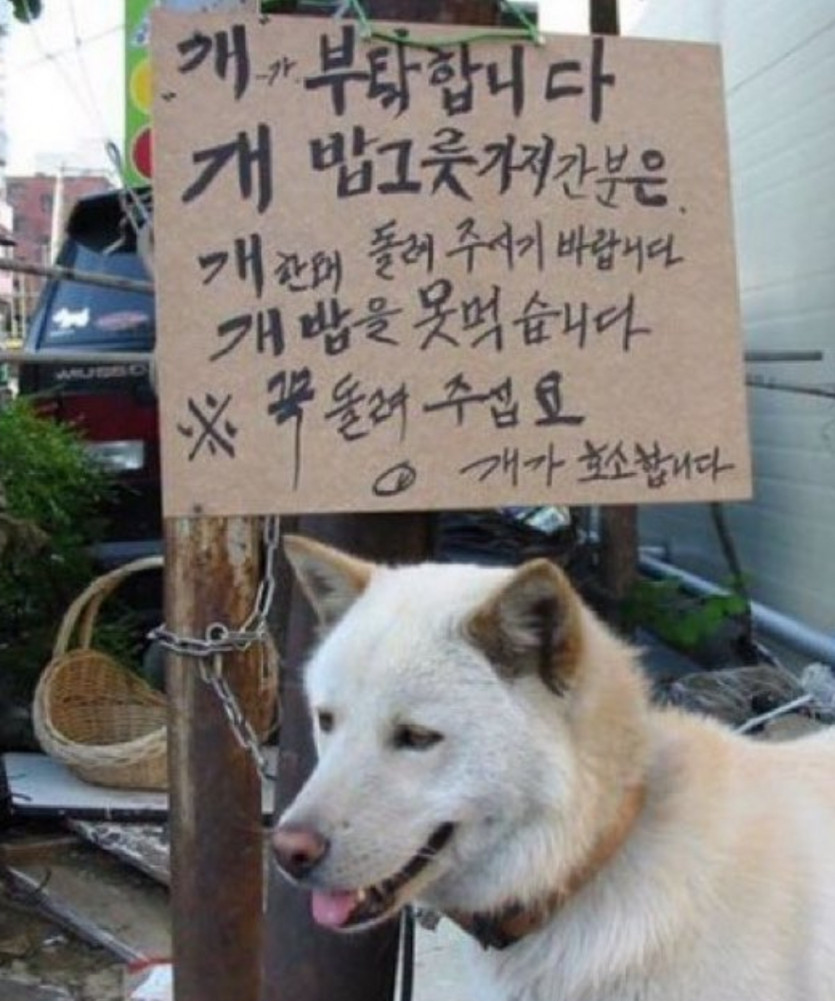 개가 부탁합니다
개 밥그릇 가져간분은
개 한테 돌려 주시기 바랍니다
개 밥을 못먹습니다
※ 꼭 돌려 주셉요
개가 호소합니다
MUSSO